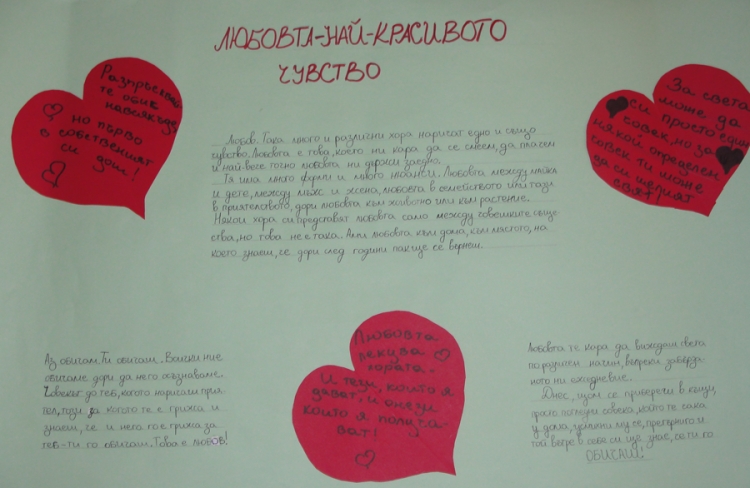 ЛЮБОВТА-НАЙ-КРАСИВОТО
ЧУВСТВО
Разпръсквай
те обич
навсякъде
но първо
в собственият
си дом!
За света
може да
си просто един
човек, но за
някой определен
човек ти може
да си целият
свят!
Любов. Така много и различни хора наричат едно и също
чувство. Любовта е това, което ни кара да се смеем, да плачем
и най-вече точно любовта ни държи заедно.
Тя има много форми и много нюанси. Любовта между майка
и дете, между мъж и жена, любовта в семейството или тази
в приятелството, дори любовта към животно или към растение.
Някои хора си представят любовта само между човешките съще
ства, но това не е така. Ами любовта към дома, към мястото, на
което знаеш, че дори след години пак ще се върнеш.
Любовта
лекува
хората.
И тези, които я
дават, и онези
които я получа-
ват!
Аз обичам. Ти обичаш. Всички ние
обичаме дори да не го осъзнаваме.
Човекът до теб, когото наричаш прия
тел, този за когото те е грижа и
знаеш, че и него го е грижа за
теб-ти го обичаш. Това е любов!
Любовта те кара да виждаш света
по различен начин, въпреки забърза-
ното ни ежедневие.
Днес, щом се прибереш в къщи,
просто погледни човека, който те чака
у дома, усмихни му се, прегърни го и
той вече в себе си ще знае, че ти го
ОБИЧАШ!